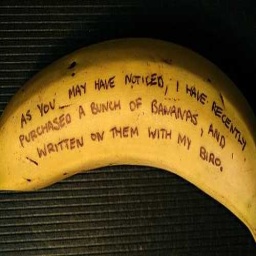 AS YOU MAY HAVE NOTICED, I HAVE RECENTLY
PURCHASED A BUNCH OF BANANAS, AND
WRITTEN ON THEM WITH MY BIRO.